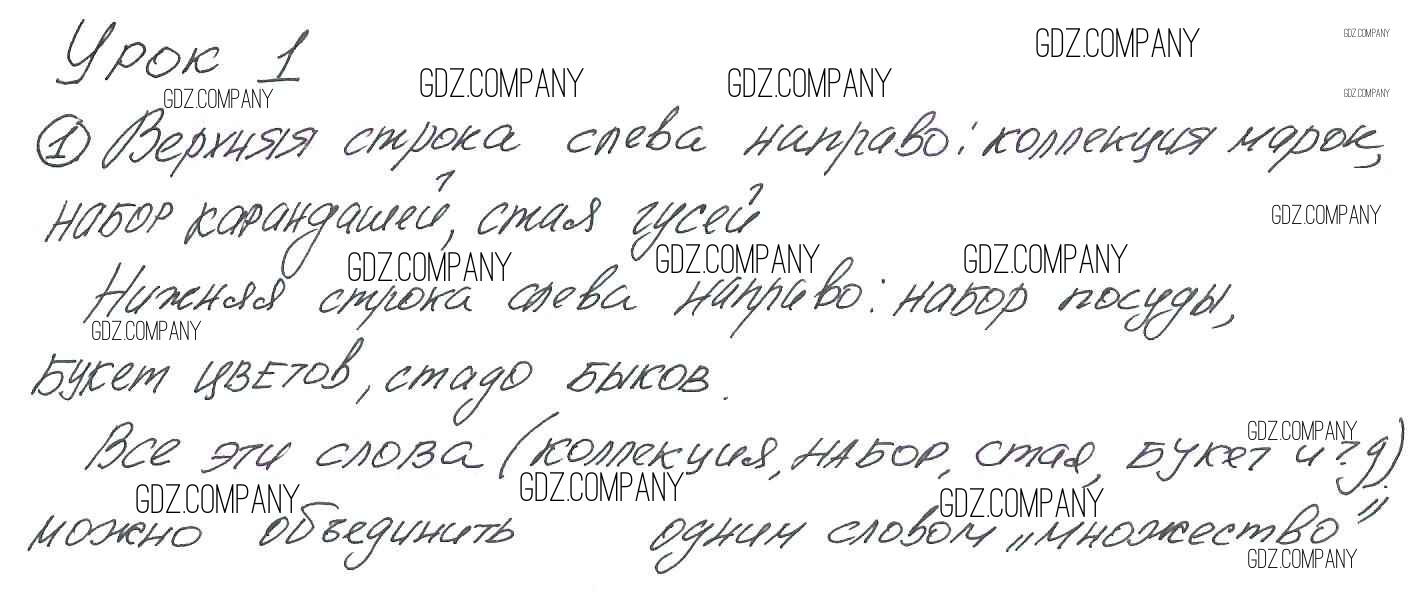 Урок 1
GDZ.COMPANY GDZ.COMPANY GDZ.COMPANY GDZ.COMPANY GDZ.COMPANY
GDZ.COMPANY
① Верхняя строка слева направо: коллекция марок,
набор карандашей, стая гусей
GDZ.COMPANY
GDZ.COMPANY GDZ.COMPANY GDZ.COMPANY
Нижняя строка слева направо: набор посуды,
GDZ.COMPANY
Букет цветов, стадо быков.
GDZ.COMPANY
Все эти слова (коллекция, набор, стая, букет и т.д)
GDZ.COMPANY GDZ.COMPANY GDZ.COMPANY
можно объединить одним словом „множество”
GDZ.COMPANY